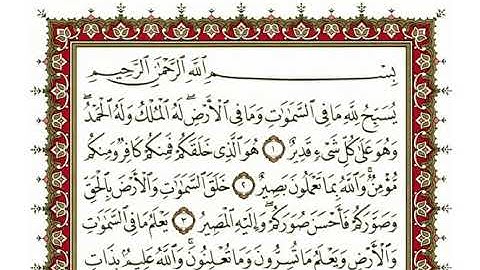 بِسْمِ اللَّهِ الرَّحْمَٰنِ الرَّحِيمِ
يُسَبِّحُ لِلَّهِ مَا فِي السَّمَٰوَٰتِ وَمَا فِي الْأَرْضِ ۖ لَهُ الْمُلْكُ وَلَهُ الْحَمْدُ ۖ
وَهُوَ عَلَىٰ كُلِّ شَيْءٍ قَدِيرٌ ١ هُوَ الَّذِي خَلَقَكُمْ فَمِنكُمْ كَافِرٌ وَمِنكُم
مُّؤْمِنٌ ۚ وَاللَّهُ بِمَا تَعْمَلُونَ بَصِيرٌ ٢ خَلَقَ السَّمَٰوَٰتِ وَالْأَرْضَ بِالْحَقِّ
وَصَوَّرَكُمْ فَأَحْسَنَ صُوَرَكُمْ ۖ وَإِلَيْهِ الْمَصِيرُ ٣ يَعْلَمُ مَا فِي السَّمَٰوَٰتِ
وَالْأَرْضِ وَيَعْلَمُ مَا تُسِرُّونَ وَمَا تُعْلِنُونَ ۚ وَاللَّهُ عَلِيمٌ بِذَاتِ